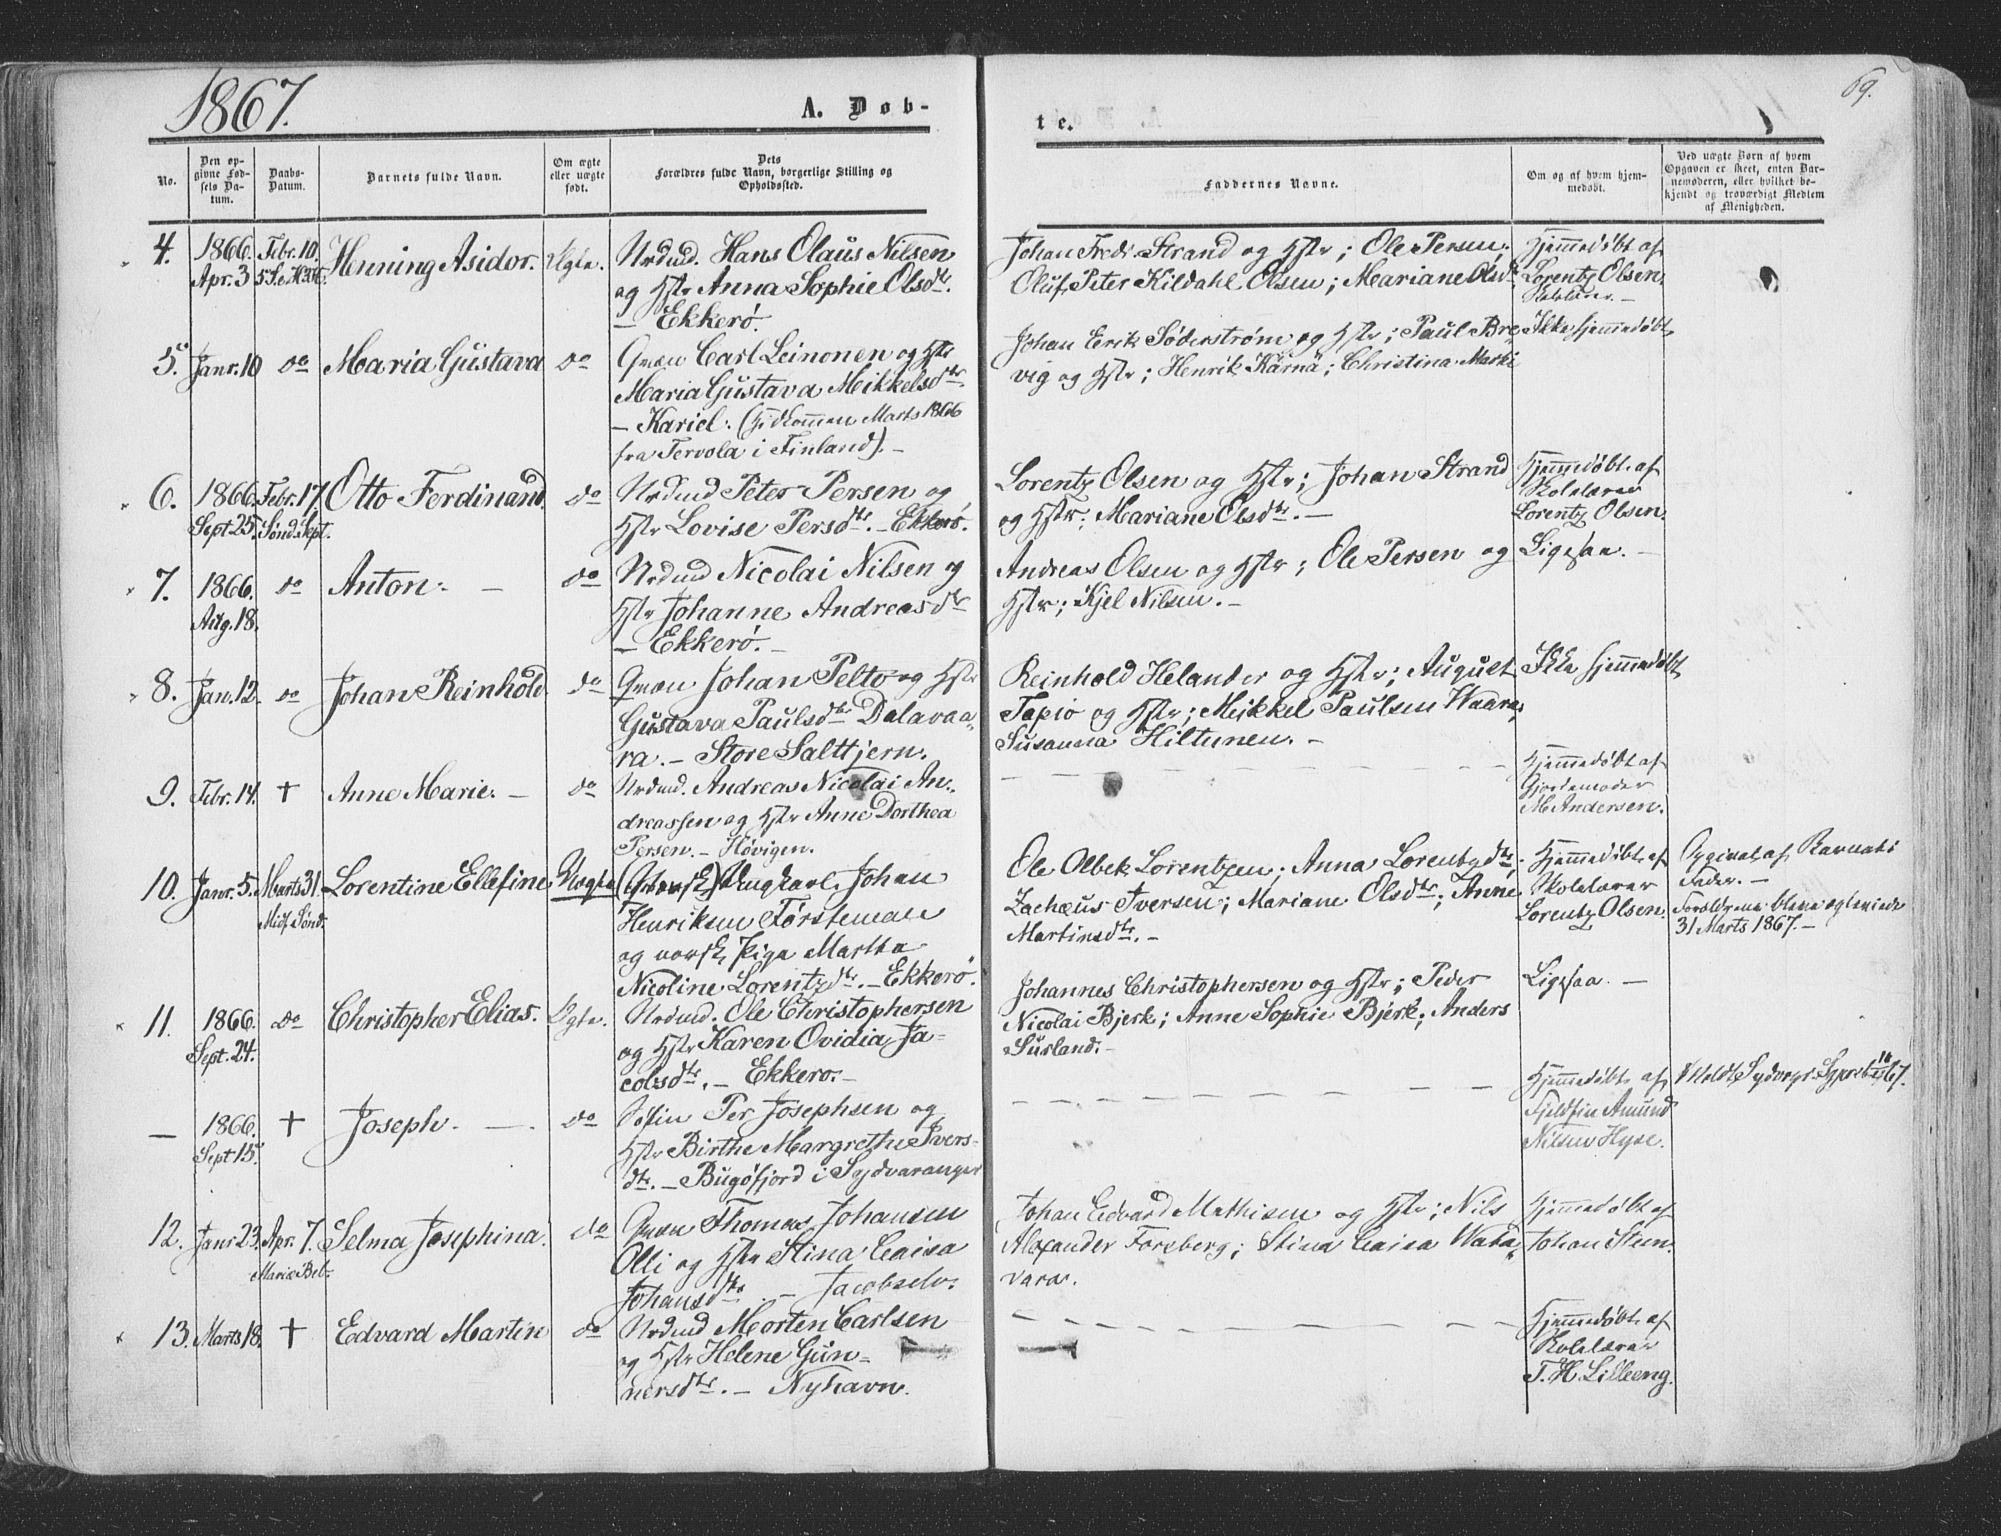 1867.
A. Døb-
te.
69.
No.
Den op-
givne Fød-
sels Da-
tum.
Daabs-
Datum.
Barnets fulde Navn.
Om ægte
eller uægte
født.
Dets
Forældres fulde Navn, borgerlige Stilling og
Opholdssted.
Faddernes Navne.
Om og af hvem hjem-
medøbt.
Ved uægte Børn af hvem
Opgaven er skeet, enten Bar-
nemoderen, eller hvilket be-
kjendt og troværdigt Medlem
af Menigheden.
4. 1866. Febr. 10. Henning Asidor. Ægte. Nrdmd. Hans Olaus Nilsen
Apr. 3
og Hstr Anna Sophie Olsdtr.
— Ekkerö.
Johan Fredr. Strand og Hstr; Ole Persen;
Oluf Peter Kildahl Olsen; Mariane Olsdtr.
Hjemmedøbt af
Lorentz Olsen,
Skolelærer. —
5. Janr. 10 do Maria Gustava do Qvæn Carl Leinonen og Hstr
Maria Gustava Mikkelsdtr
— Kariel. (Hidkommen Marts 1866
fra Tervola i Finland). —
Johan Erik Söderström og Hstr; Paul Bre-
vig og Hstr; Henrik Kärnä; Christina Marki
Ikke hjemmedøbt
6. 1866. Febr. 17, Otto Ferdinand. do Nrdmd Peter Persen og
Sept. 25. Sønd. Sept.
Hstr Lovise Persdtr. — Ekkerö.
Lorentz Olsen og Hstr; Johan Strand
og Hstr; Mariane Olsdtr. —
Hjemmedøbt af
Skolelærer
Lorentz Olsen.
7. 1866. do Anton. — do Nrdmd Nicolai Nilsen og
Aug. 18.
Hstr Johanne Andreasdtr
— Ekkerö. —
Andreas Olsen og Hstr; Ole Persen og
Hstr; Kjel Nilsen. —
Ligesaa. —
8. Jan. 12. do Johan Reinhold. do Qvæn Johan Pelto og Hstr
Gustava Paulsdtr Dalavaa-
ra. — Store Saltjern.
Reinhold Helander og Hstr; August
Tapio og Hstr; Mikkel Paulsen Waara;
Susanna Hiltunen. —
Ikke hjemmedøbt
9. Febr. 14. † Anne Marie. — do Nrdmd. Andreas Nicolai An-
dreassen og Hstr Anne Dorthea
Persen. — Høvigen.
Hjemmedøbt af
Gjordemoder
M. Andersen.
10. Janr. 5. Marts 31. Lorentine Ellefine. Uægte (Qvænsk) Ungkarl Johan
Midf. Sønd.
Henriksen Førsteman
og norsk Pige Martha
Nicoline Lorentzdtr. — Ekkerö.
Ole Olbek Lorentzen; Anna Lorentzdtr;
Zachæus Iversen; Mariane Olsdtr; Anne
Martinsdtr. —
Hjemmedøbt af
Skolelærer
Lorentz Olsen.
Opgivet af Barnets
Fader. —
Forældrene bleve egteviede
31 Marts 1867. —
11. 1866. do Christopher Elias. Ægte. Nrdmd. Ole Christophersen
Sept. 24.
og Hstr Karen Ovidia Ja-
cobsdtr. — Ekkerö. —
Johannes Christophersen og Hstr; Peder
Nicolai Bjerk; Anne Sophie Bjerk; Anders
Susland. —
Ligesaa. —
— 1866. † Joseph. — do Søfin Per Josephsen og
Sept 15.
Hstr Birthe Margrethe Ivers-
dtr. — Bugöfjord i Sydvaranger
Hjemmedøbt af
Fjeldfin Amund
Nilsen Hyse.
12. Janr 23. Apr. 7. Selma Josephina. do Qvæn Thomas Johansen
Mariæ Beb.
Olli og Hstr Stina Caisa
Johansdtr. — Jacobselv.
Johan Edvard Mathisen og Hstr; Nils
Alexander Forsberg; Stina Caisa Wata-
vara.
Hjemmedøbt af
Johan Stein.
13. Marts 18. † Edvard Martin do Nrdmd Morten Carlsen
og Hstr Helene Gun-
nersdtr. — Nyhavn.
Hjemmedøbt af
Skolelærer
T. H. Lilleeng.